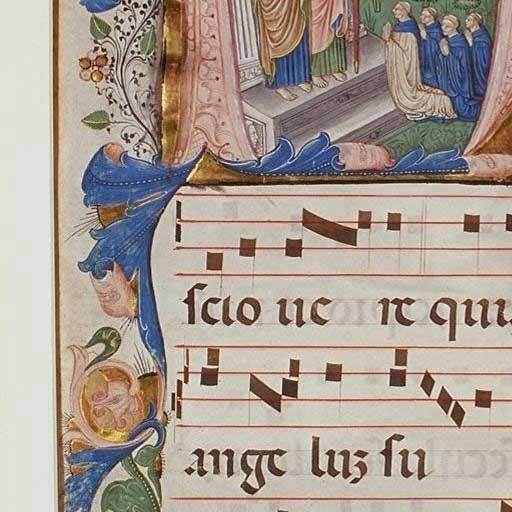 ſcio ue re qui
ange luʒ ſu